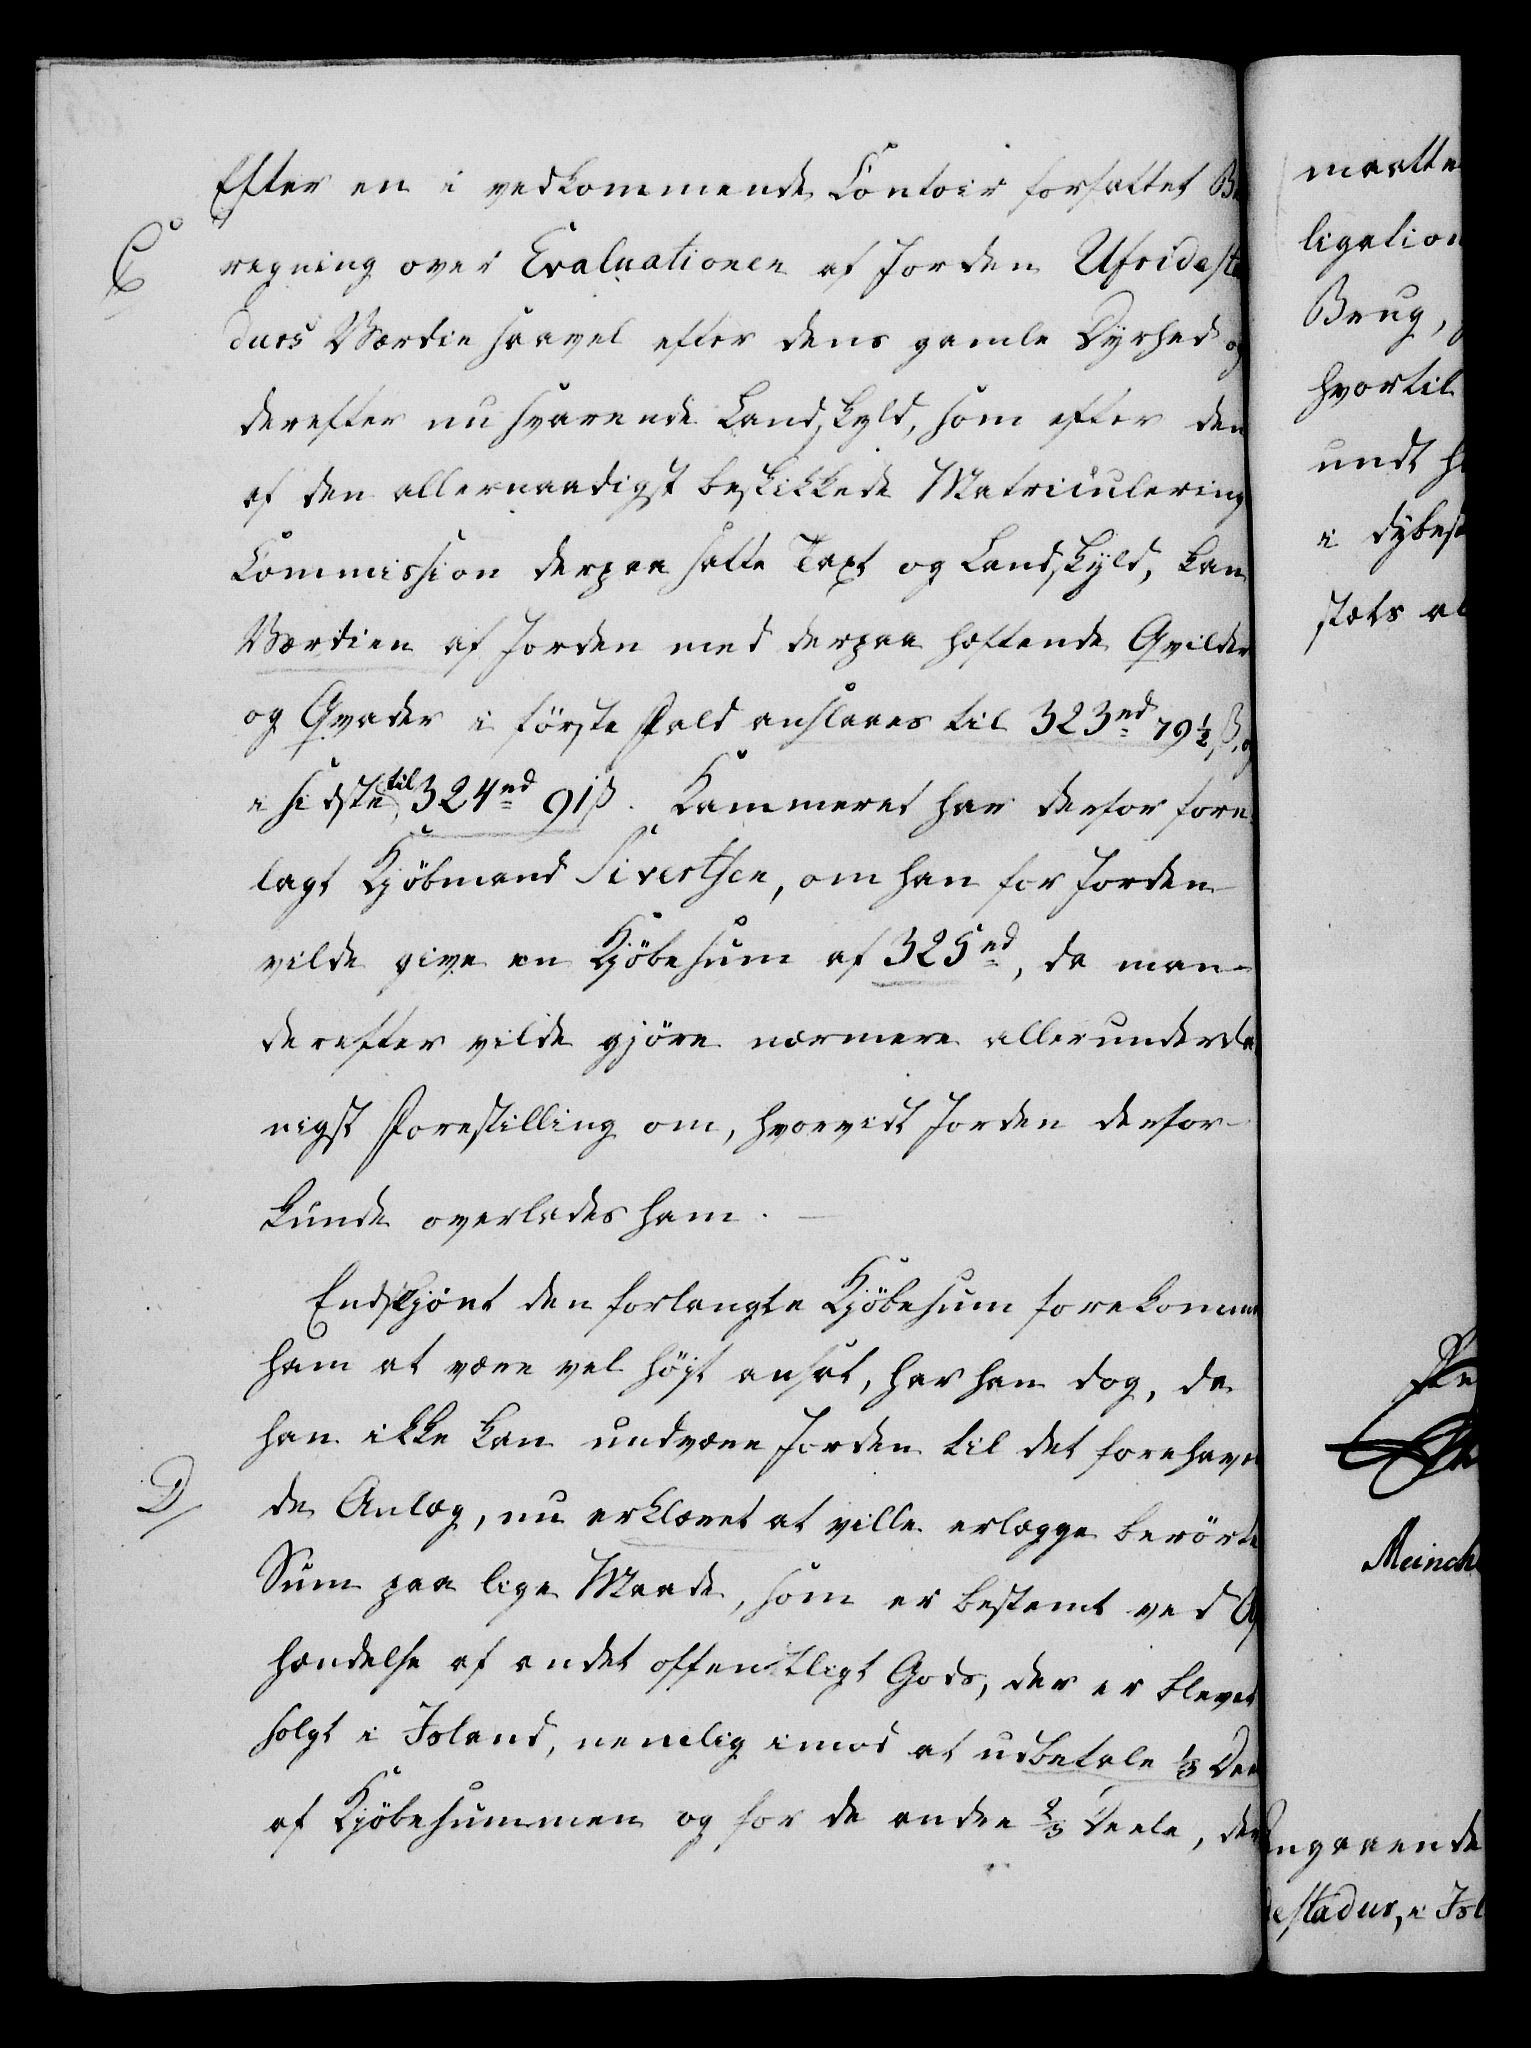 Efter en i vedkommende Contoir forfattet Be
C
regning over Evaluationen af Jorden Ufridesta
durs Værdie saavel efter dens gamle Dyrhed og
derefter nu svarende Landskyld, som efter den
af den allernaadigst beskikkede Matriculering
Commission derpaa satte Taxt og Landskyld, kan
Værdien af Jorden med derpaa hæftende Qvilder
og Qvæder i förste Fald anslaaes til 323 rd 79½ ß, og
i sidste til 324 rd 91 ß. Kammeret har derfor fore
lagt Kjöbmand Sivertsen, om han for Jorden
vilde give en Kjöbesum af 325 rd, da man
derefter vilde gjöre nærmere allerunderda
nigst Forestilling om, hvorvidt Jorden derfor
kunde overlades ham.
Endskjönt den forlangte Kjöbesum forekomme
ham at være vel höjt ansat, har han dog, da
han ikke kan undvære Jorden til det forehaven
D
de Anlæg, nu erklæret at ville erlægge berörte
Sum paa lige Maade, som er bestemt ved Af
hændelse af andet offentligt Gods, der er blevet
solgt i Island, nemlig imod at udbetale ⅓ Dee
af Kjöbesummen og for de andre ⅔ Deele, der
maatte
ligation
Brug,
hvortil
undt h
i dybest
stæts al
Meinch
Angaaende
estadur, i Isl